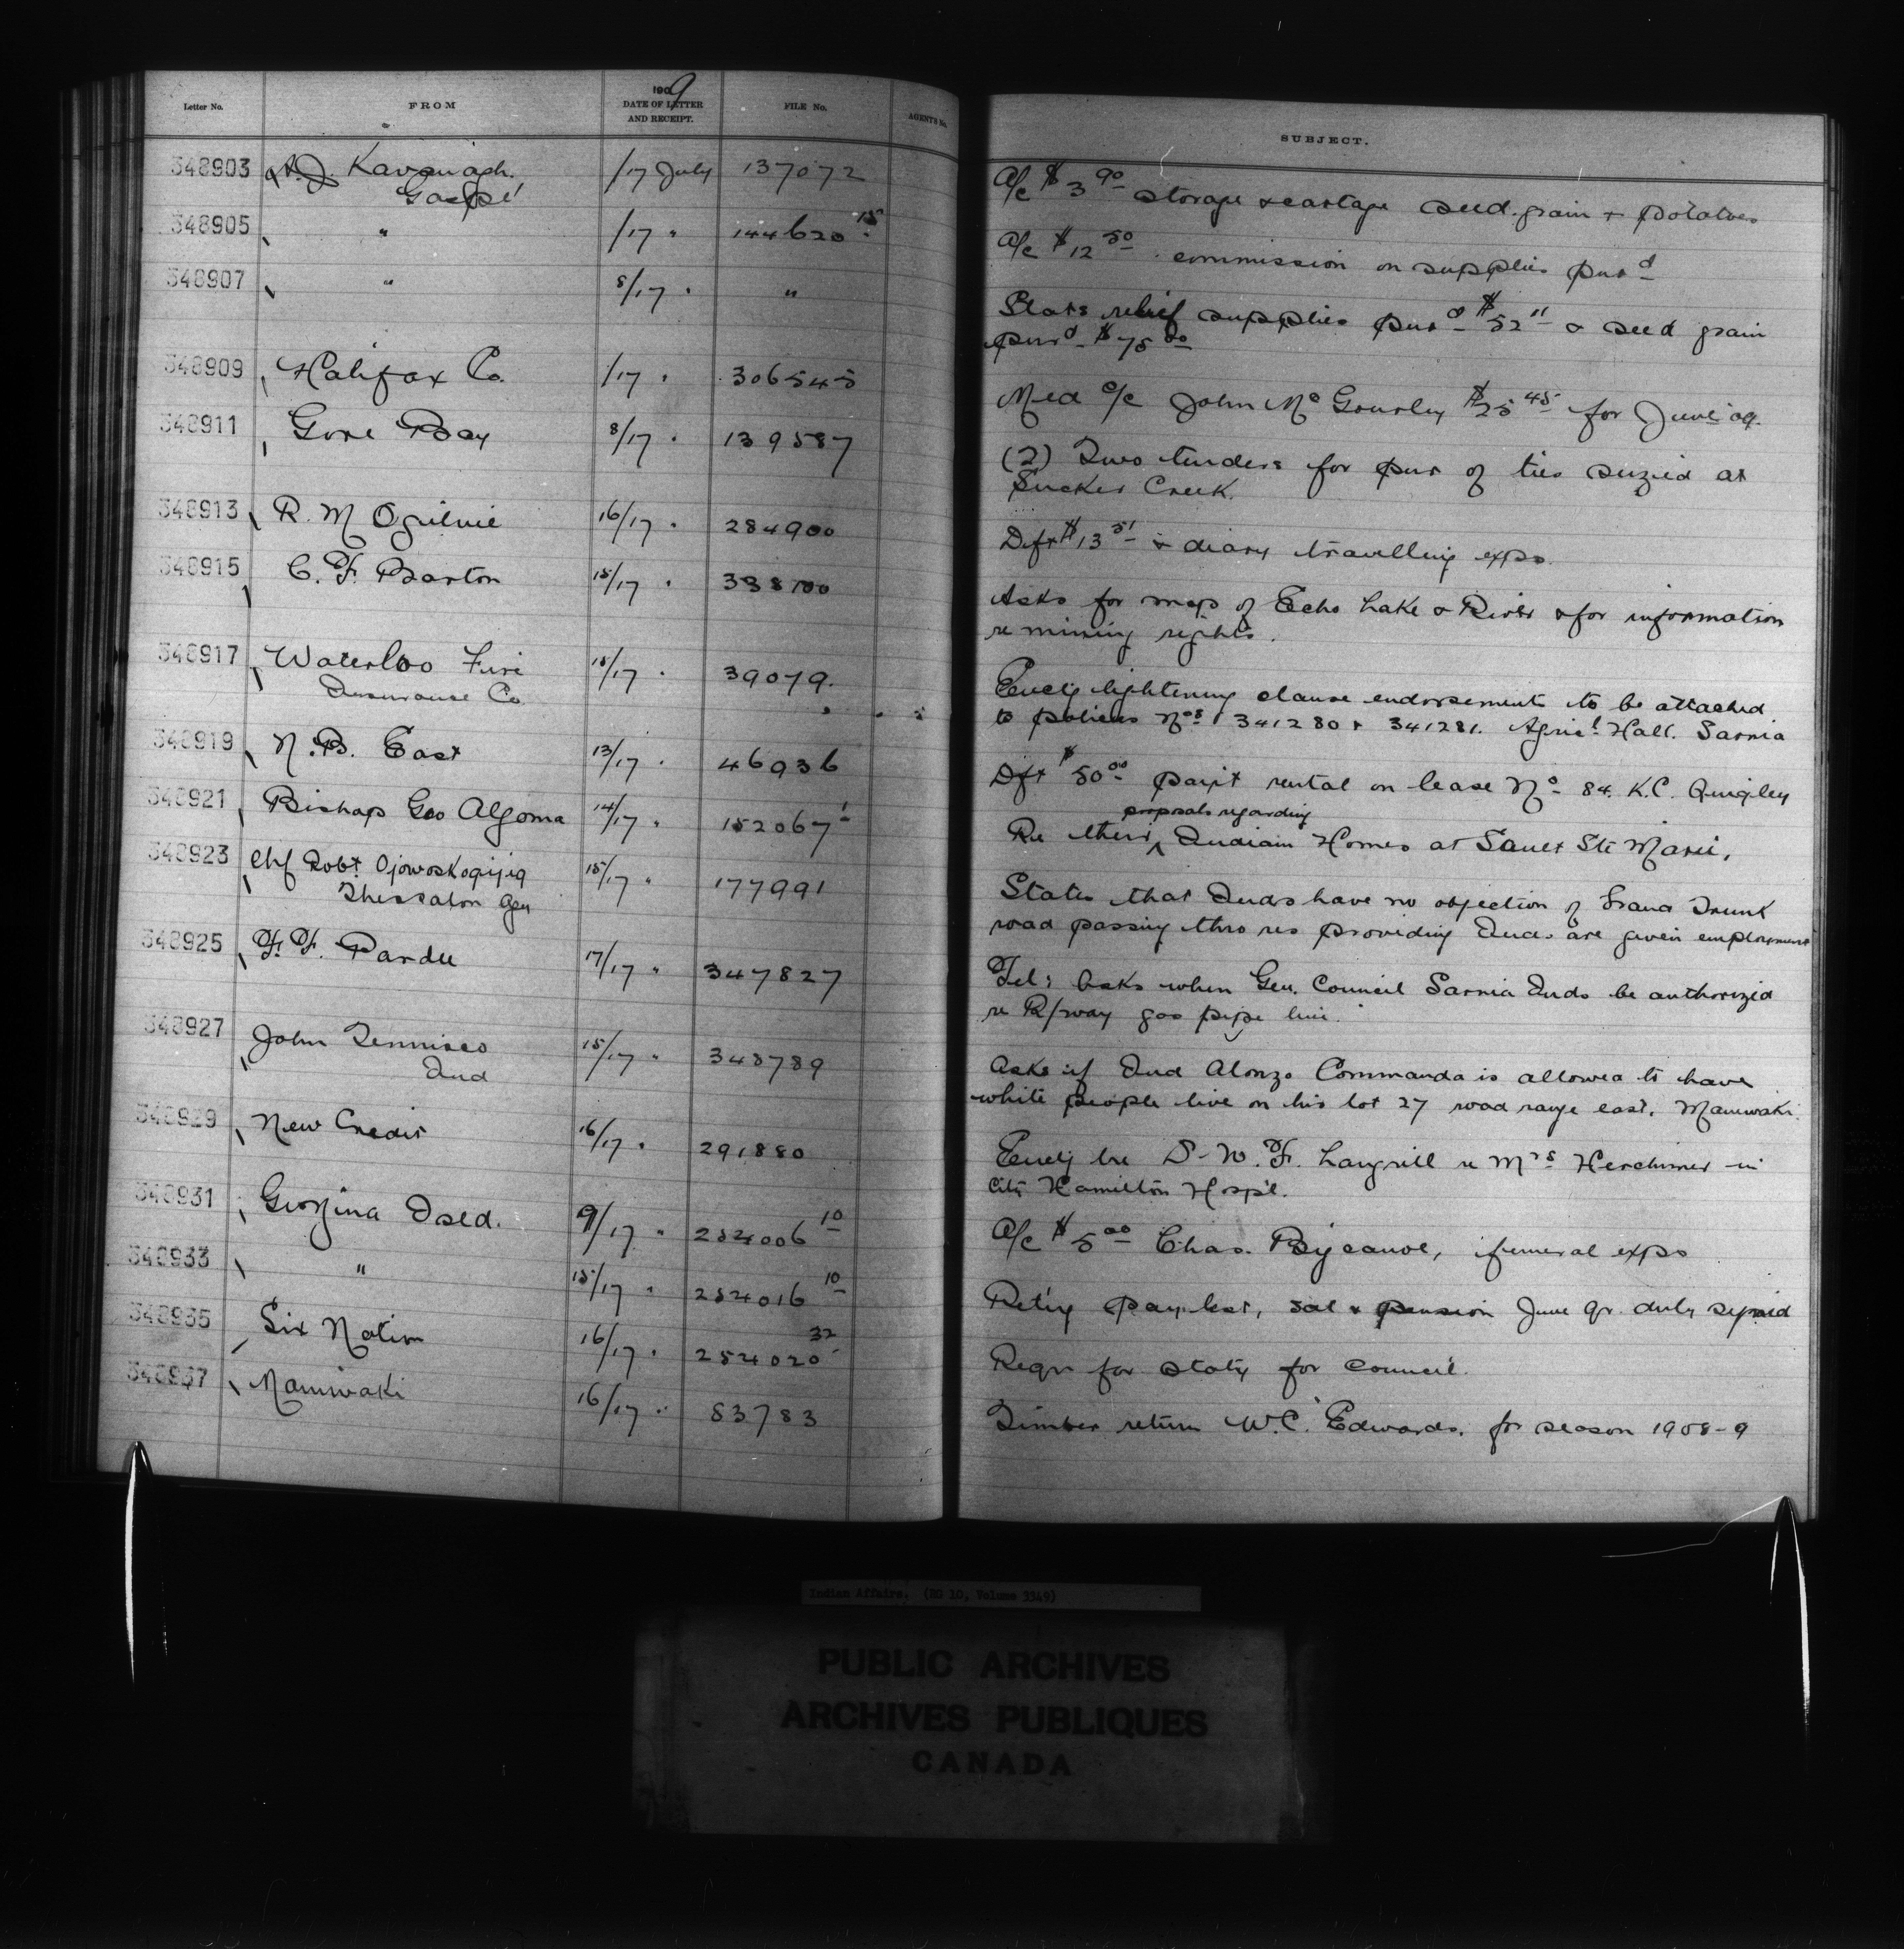 Letter No. FROM 1909 DATE OF LETTER AND RECEIPT. FILE No. AGENT'S No. SUBJECT.
348903 Kavanagh. /17 July 137072 A/c $3 90 storage & cartage seed grain & potatoes
Gaspé
348905 " /17 " 144620 15 A/c $12 50 commission on supplies purd
348907 " 8/17 " " Stats relief supplies purd $52 11 & seed grain
purd $75 00
348909 Halifax Co. /17 " 306545 Med a/c John Mc Gourley $25 45 for June 09.
348911 Gore Bay 8/17 " 139587 (2) Two tenders for pur of ties seized at
Sucker Creek.
348913 R. M Ogilvie 16/17 " 284900 Dft $13 51 & diary travelling exps.
348915 C. F. Barton 15/17 " 338100 Asks for map of Echo Lake & River & for information
re mining rights.
348917 Waterloo Fire 15/17 " 39079. Enclg lightening clause endorsements to be attached
Insurance Co to policies Nos 341280 & 341281. Agricl Hall. Sarnia
348919 N. B. East 13/17 " 46936 Dft $50 00 payt rental on lease No 84. K.C. Quigley
348921 Bishop Geo Algoma 14/17 " 152067 1 Re their proposals regarding Indian Homes at Sault Ste Marie.
348923 Chf Robt Ojowoskogijig 15/17 " 177991 States that Inds have no objection of Grand Trunk
Thessalon Agy road passing thro res providing Inds are given employment
348925 F. F. Pardee 17/17 " 347827 Tel: Asks when Gen. Council Sarnia Inds be authorized
re R/way gas pipe line.
348927 John Tennisco 15/17 " 348789 Asks if Ind Alonzo Commanda is allowed to have
Ind white people live on his lot 27 road range east. Maniwaki.
348929 New Credit 16/17 " 291880 Enclg lre W. F. Langrill re Mrs Herchimer in
City Hamilton Hospl.
348931 Georgina Isld. 9/17 " 254006 10 A/c $5 00 Chas. Bigcanoe, funeral exps
348933 " 15/17 " 254016 10 Retg pay list, sal & pension June qr. duly signed
348935 Six Nation 16/17 " 254020 32 Reqn for staty for council.
348937 Maniwaki 16/17 " 83783 Timber return W. C. Edwards. for season 1908-9
Indian Affairs. (RG 10, Volume 3349)
PUBLIC ARCHIVES
ARCHIVES PUBLIQUES
CANADA